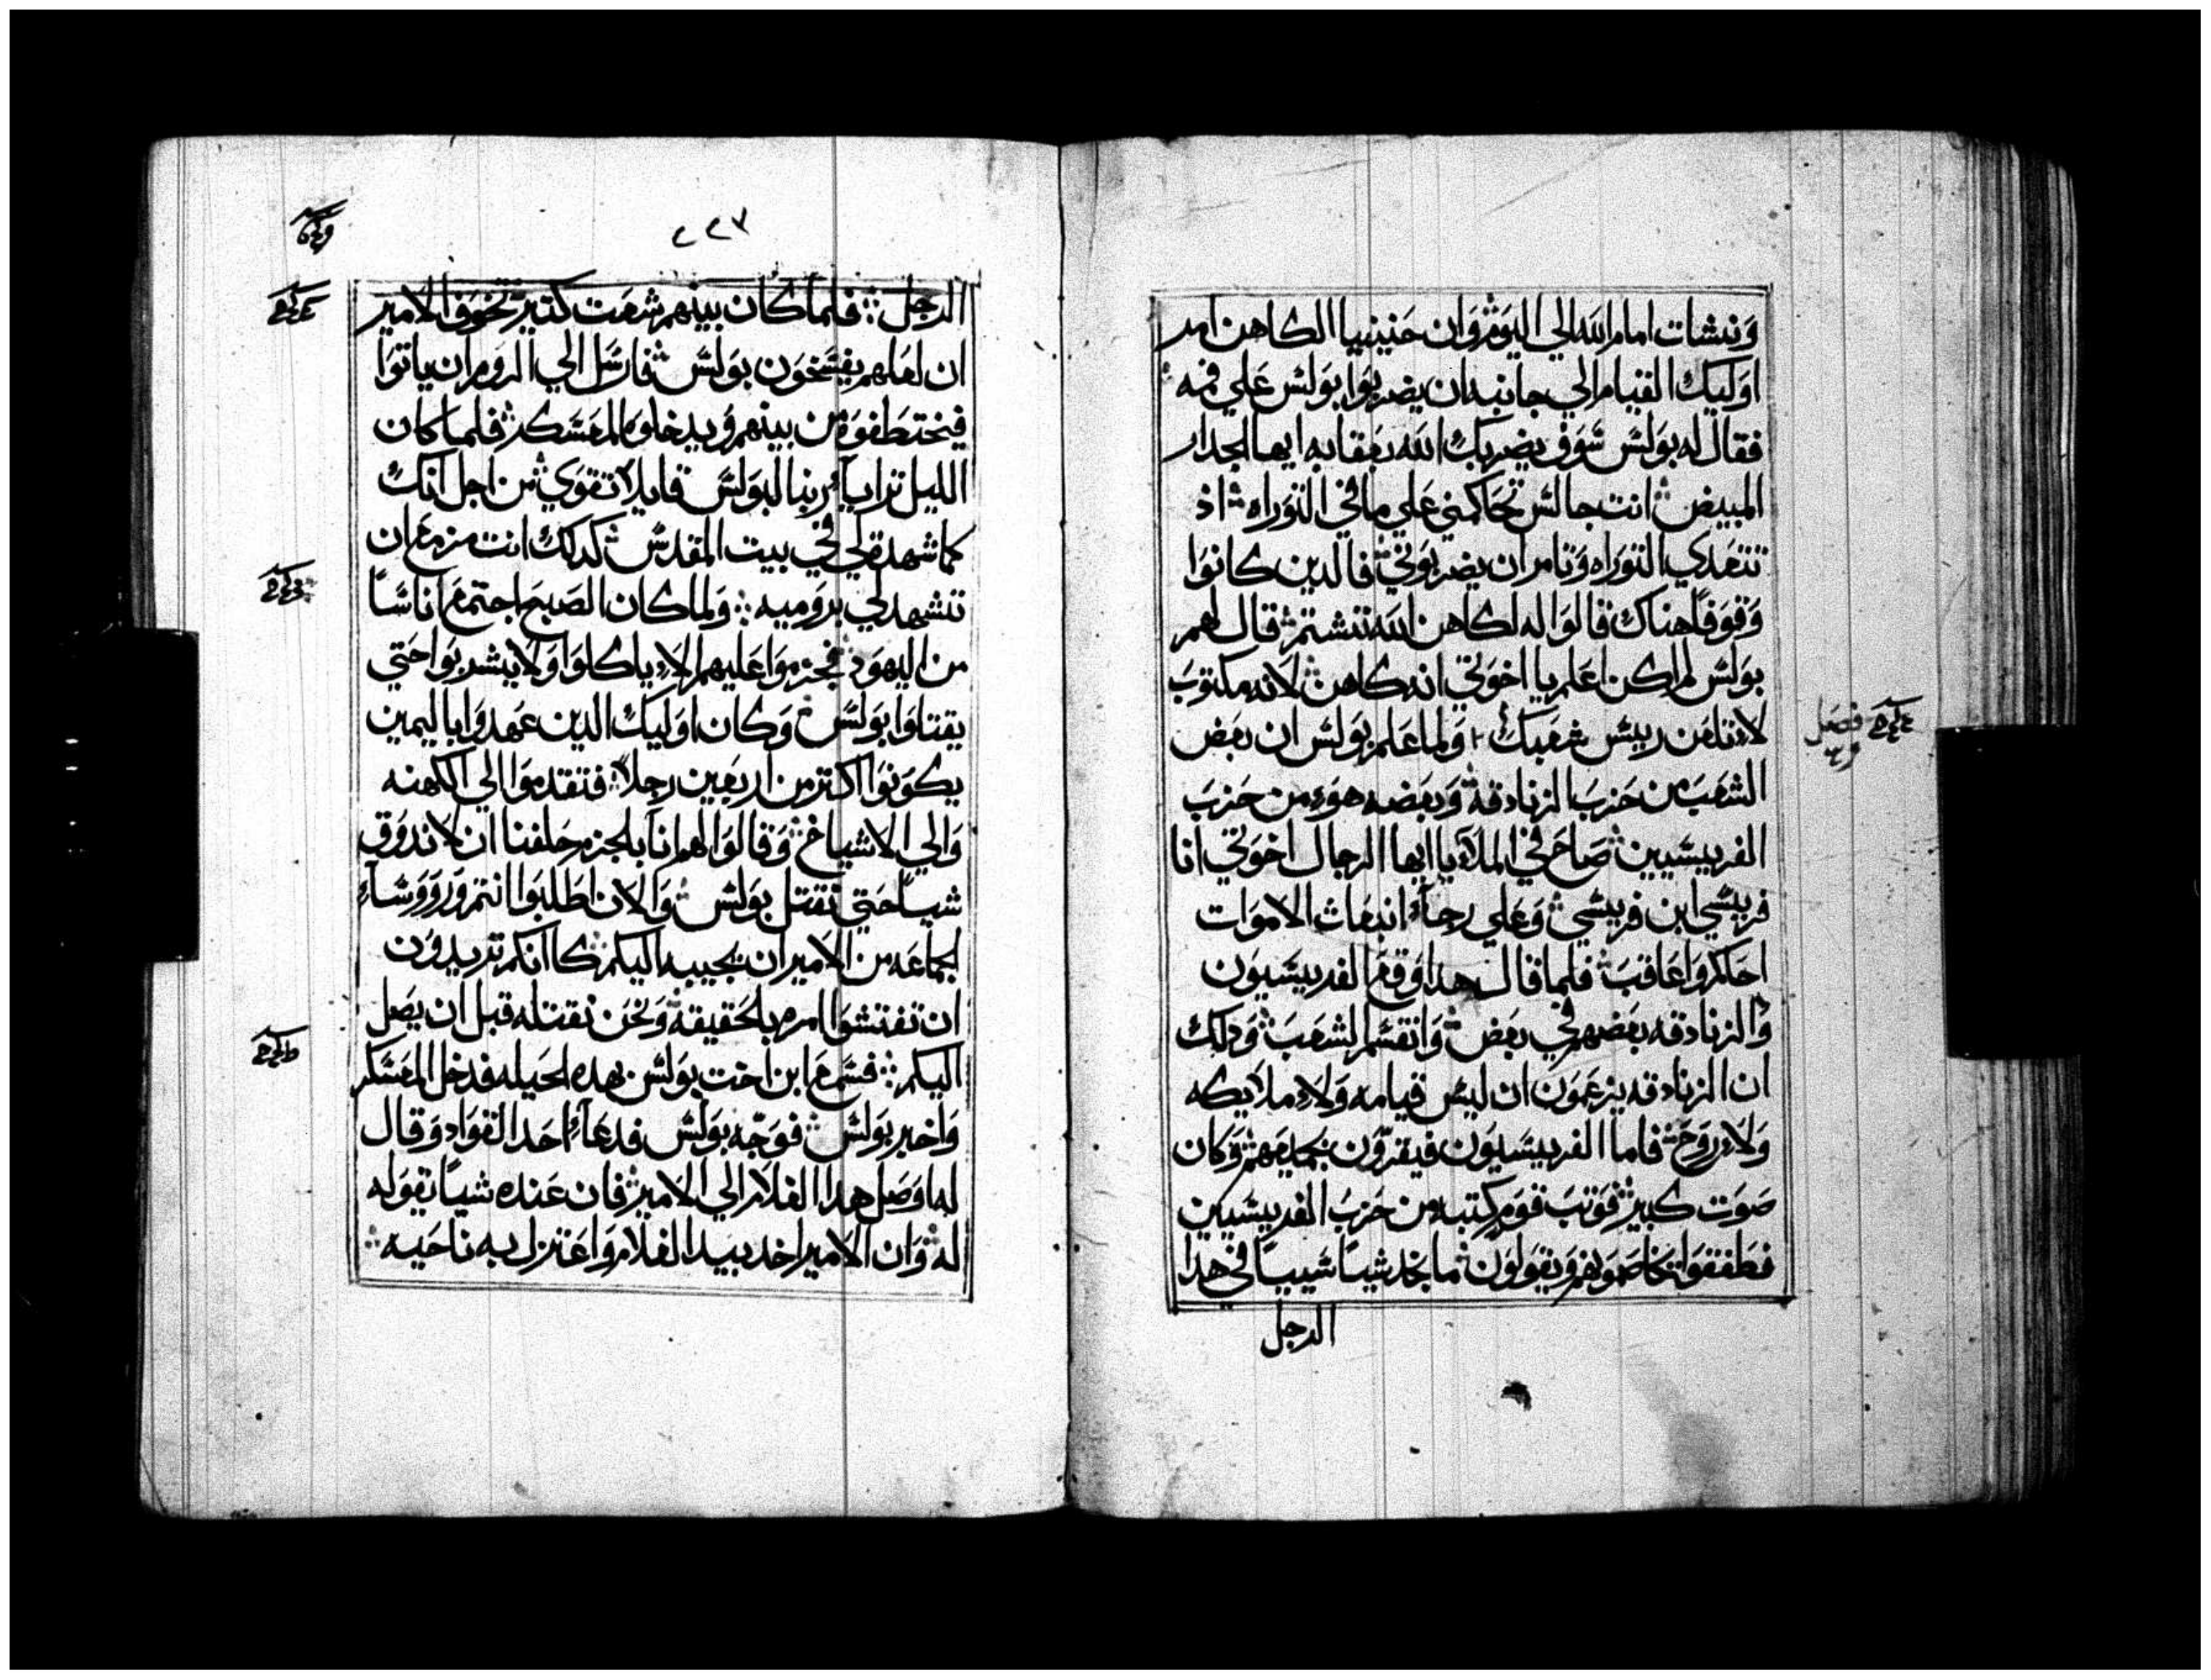 ونشات امام الله الي اليوم وان حنينيا الكاهن امر
اوليك القيام الي جانبه ان يضربوا بولس علي فمه
فقال له بولس سوف يضربك الله بعقابه ايها الجدار
المبيض انت جالس تحاكمني علي ما في التوراه اذ
تتعدي التوراه وتامر ان يضربوني فالدين كانوا
وقوفا هناك قالوا له لكاهن الله تشتم قال لهم
بولس لم اكن اعلم يا اخوتي انه كاهن لانه مكتوب
لا تلعن رييس شعبك ولما علم بولس ان بعض
الشعب من حزب الزنادقة وبعضه هو من حزب
الفريسيين صاح في الملاء يا ايها الرجال اخوتي انا
فريسي ابن فريسي وعلي رجاء انبعاث الاموات
احاكم واعاقب فلما قال هدا وقع الفريسيون
والزنادقه بعضهم في بعض وانقسم الشعب ودلك
ان الزنادقه يزعمون ان ليس قيامه ولا ملايكه
ولا روح فاما الفريسيون فيقرون بجميعهم وكان
صوت كبير فوتب قوم كتبه من حزب الفريسيين
فطفقوا يخاصمونهم ويقولون ما نجد شيا سييا في هدا
الرجل
فصل
٢٢٧
الرجل فلما كان بينهم شعت كتير تخوف الامير
ان لعلهم يفسخون بولس فارسل الي الروم ان ياتوا
فيختطفوه من بينهم ويدخلوه المعسكر فلما كان
الليل ترايا ربنا لبولس قايلا تقوي من اجل انك
كما شهدت لي في بيت المقدس كدلك انت مزمع ان
تشهد لي بروميه ولما كان الصبح اجتمع اناسا
من اليهود فحرموا عليهم الا ياكلوا ولا يشربوا حتي
يقتلوا بولس وكان اوليك الدين عهدوا باليمين
يكونوا اكتر من اربعين رجلا فتقدموا الي الكهنه
والي الاشياخ وقالوا لهم انا بالجزم حلفنا ان لا ندوق
شيا حتي نقتل بولس والان اطلبوا انتم وروسآء
لجماعه من الامير ان يجيبه اليكم كا انكم تريدون
ان تفتشوا امره بالحقيقه ونحن نقتله قبل ان يصل
اليكم فسمع ابن اخت بولس بهده الحيله فدخل المعسكر
واخبر بولس فوجه بولس فدعاء احد القواد وقال
له اوصل هدا الغلام الي الامير فان عنده شيا يقوله
له وان الامير اخد بيد الغلام واعتزل به ناحيه